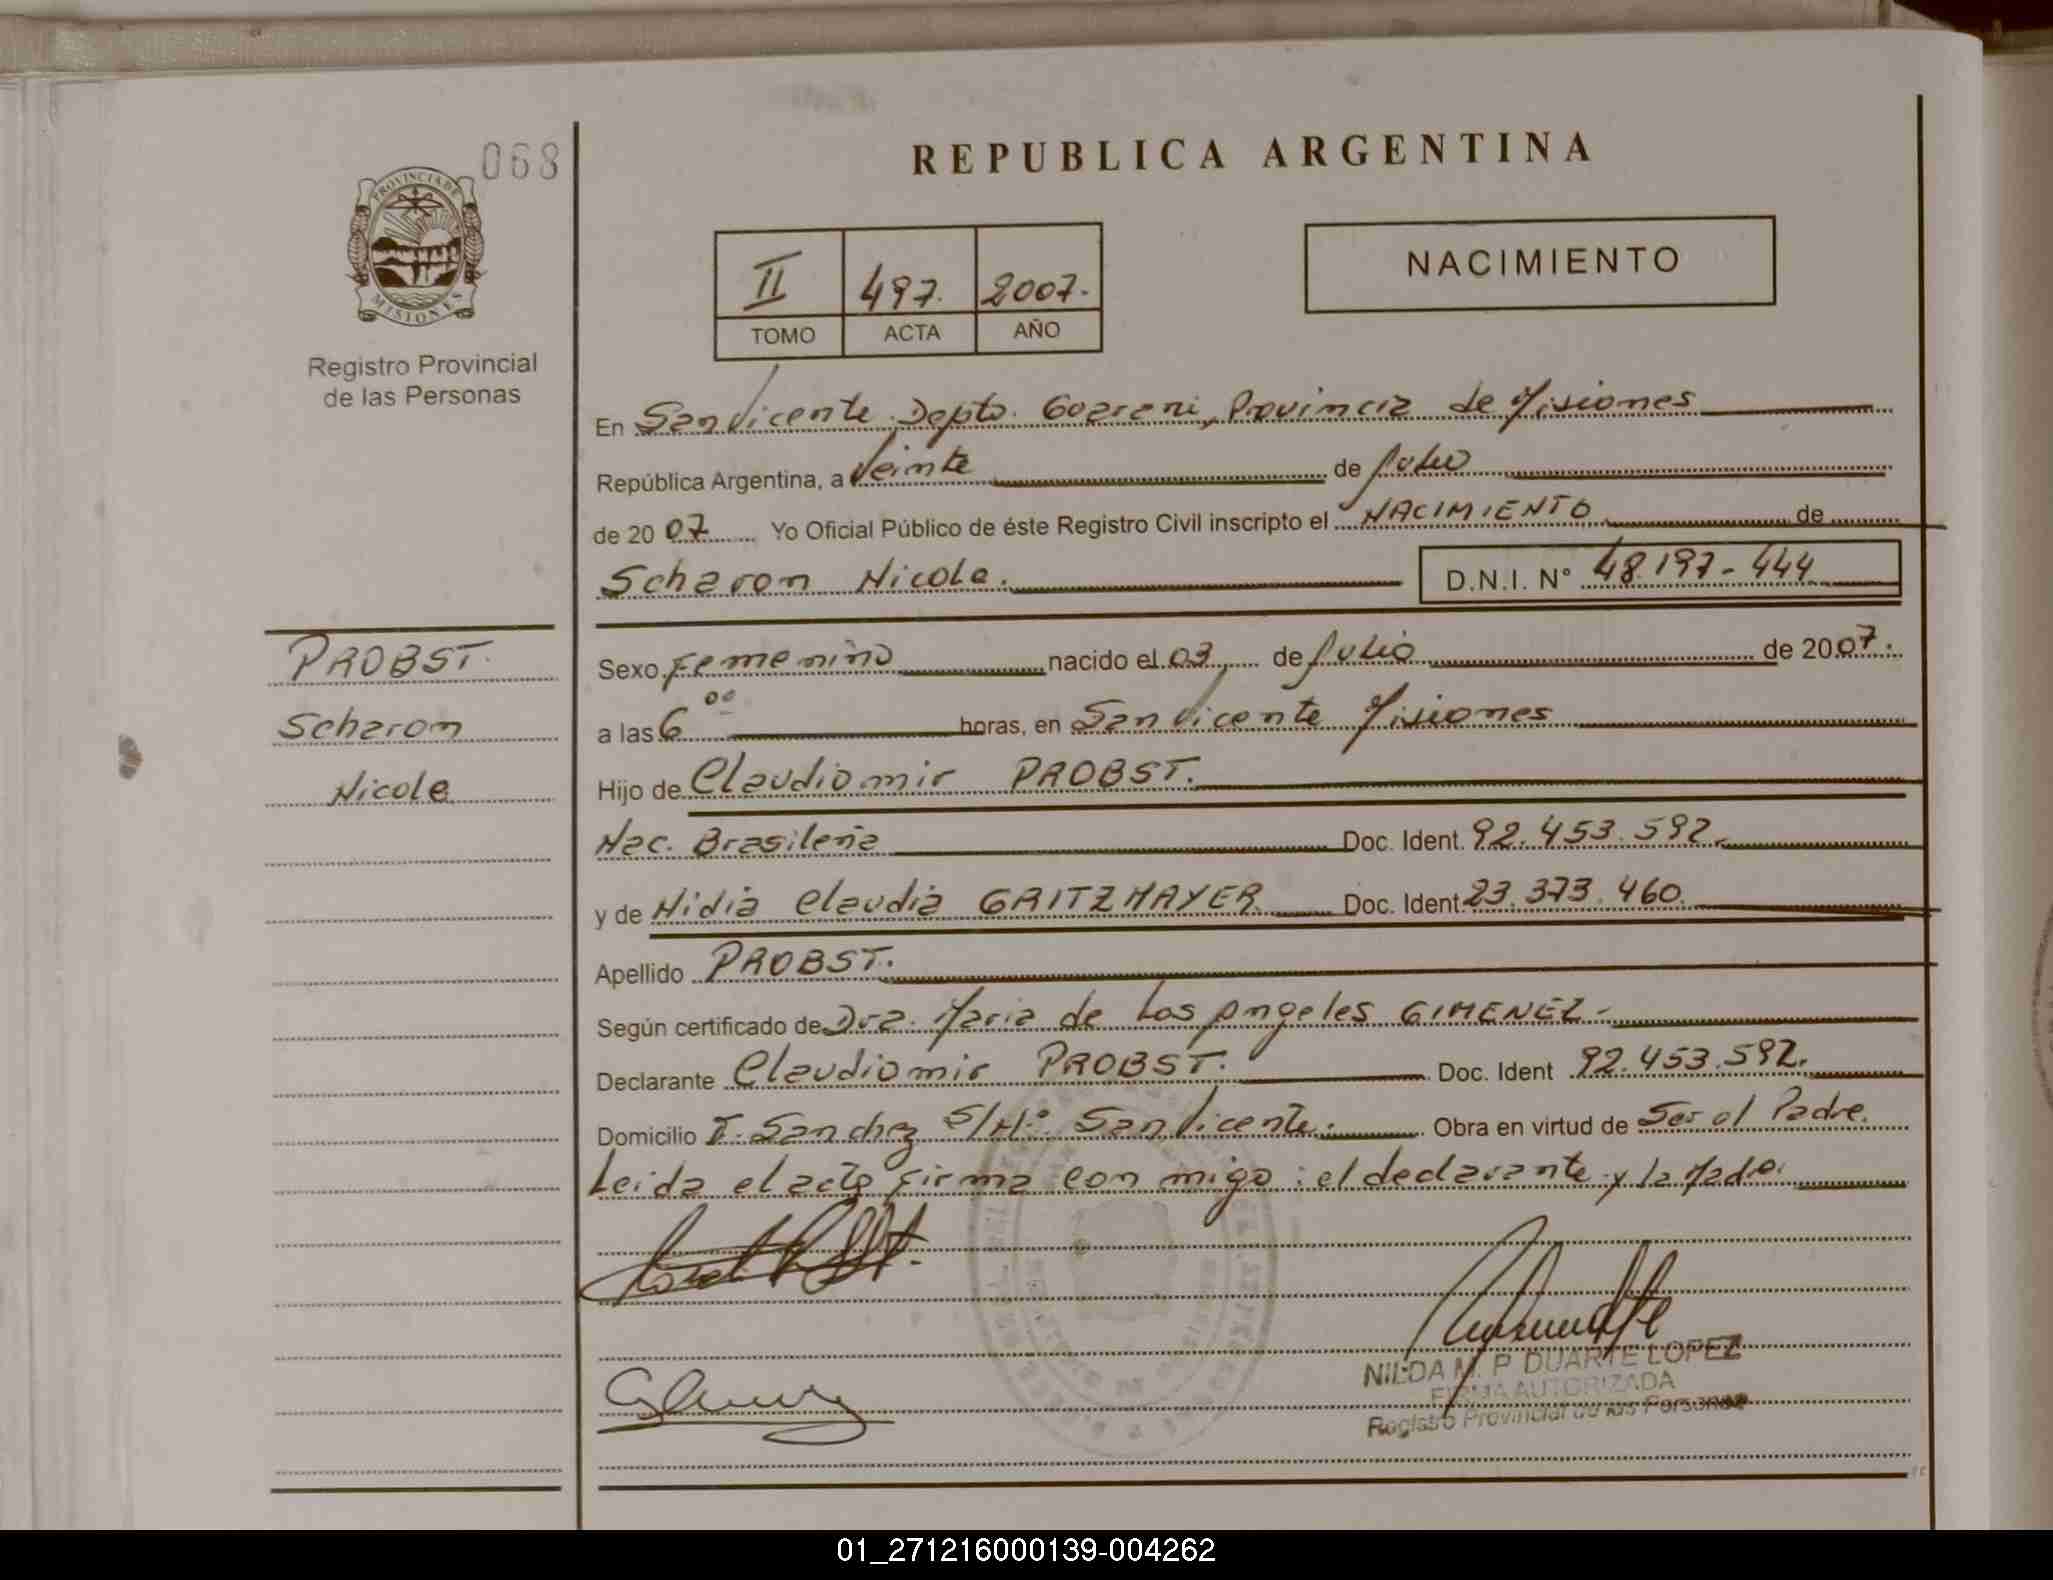 068
PROVINCIA DE
MISIONES
Registro Provincial
de las Personas
REPUBLICA ARGENTINA
II 497. 2007.
TOMO ACTA AÑO
NACIMIENTO
En San Vicente Depto. Guarani, Provincia de Misiones
República Argentina, a Veinte de Julio
de 20 07 Yo Oficial Público de éste Registro Civil inscripto el NACIMIENTO de
Scharon Nicole. D.N.I. N° 48.197-444
PROBST.
Scharon
Nicole
Sexo Femenino nacido el 03 de Julio de 2007.
a las 6 00 horas, en San Vicente Misiones
Hijo de Claudiomir PROBST.
Nac. Brasileña Doc. Ident. 92.453.592.
y de Nidia Claudia GRITZMAYER Doc. Ident. 23.373.460.
Apellido PROBST.
Según certificado de Dra. Maria de Los Angeles GIMENEZ-
Declarante Claudiomir PROBST. Doc. Ident 92.453.592.
Domicilio T. Sanchez S/N°. San Vicente. Obra en virtud de Ser el Padre.
Leida el acta firma con migo: el declarante y la Madre.
NILDA M. P. DUARTE LOPEZ
FIRMA AUTORIZADA
Registro Provincial de las Personas
01_271216000139-004262